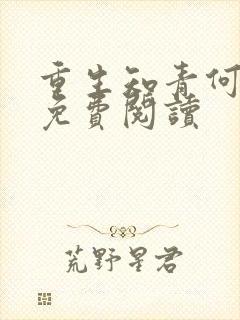 重生知青何
免費閱讀
荒野星君